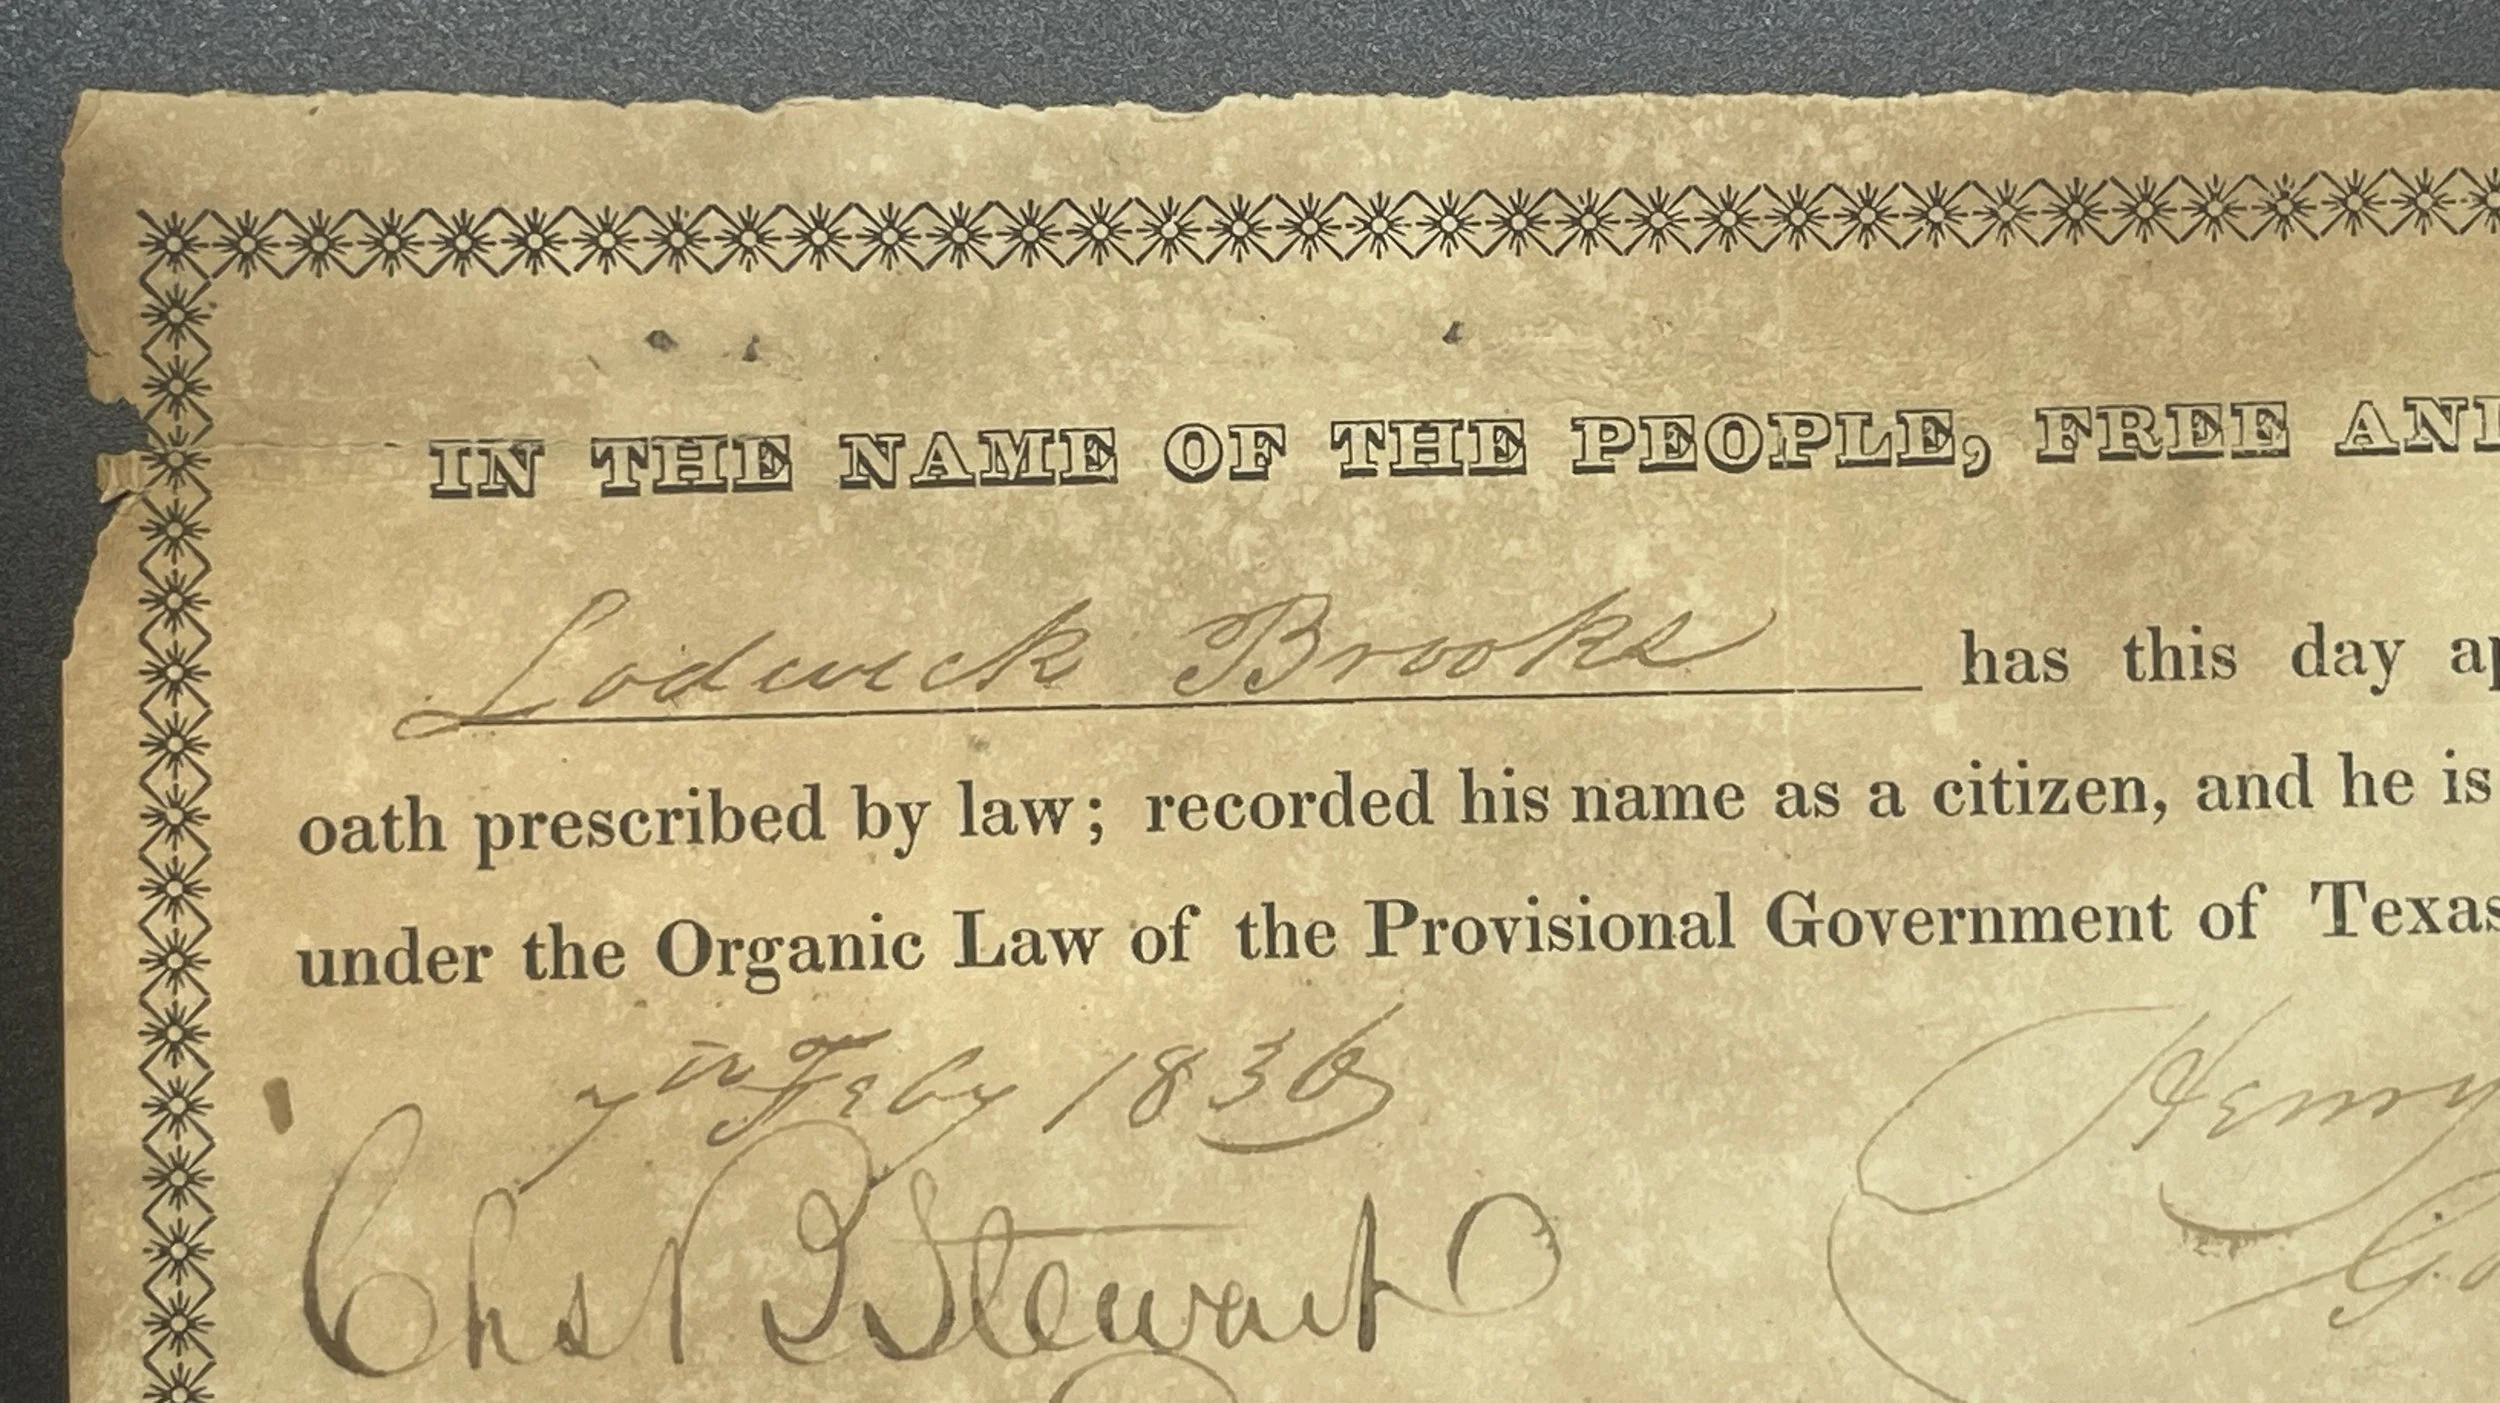 IN THE NAME OF THE PEOPLE, FREE AND
Lodwick Brooks has this day ap
oath prescribed by law; recorded his name as a citizen, and he is
under the Organic Law of the Provisional Government of Texas
7th Feby 1836
Henry
Chas B Stewart
Go